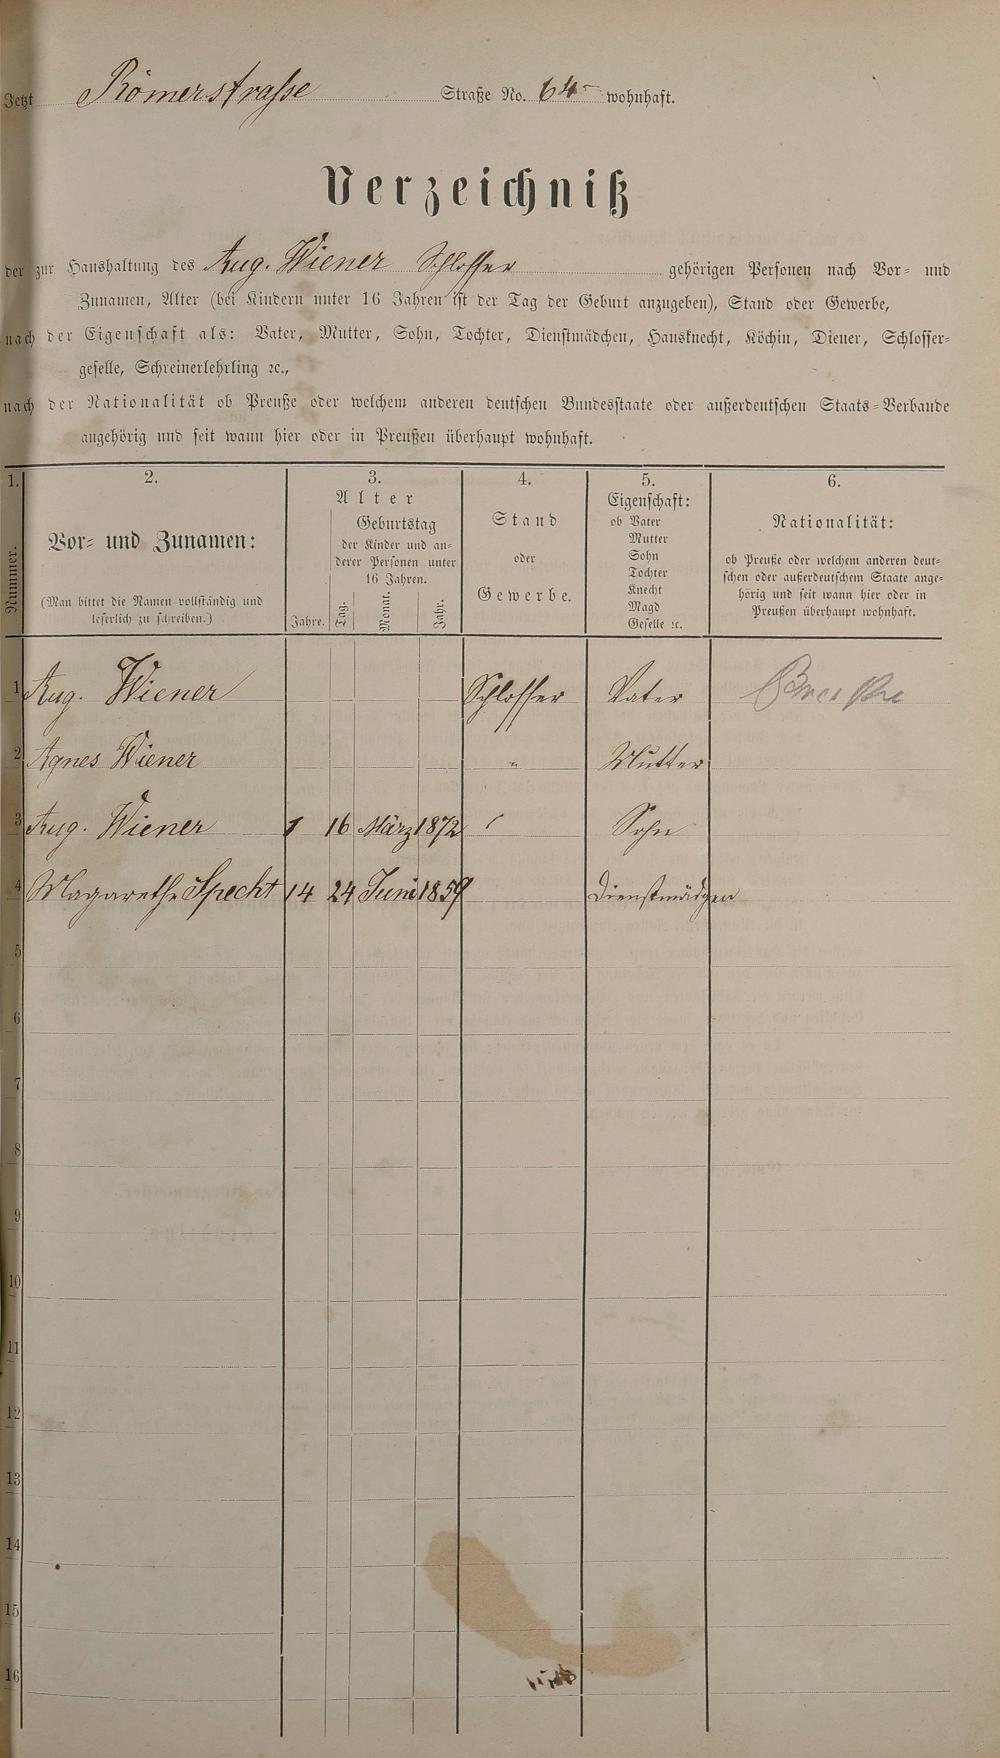 Jetzt Römerstrasse Straße No. 64 wohnhaft.
Verzeichniß
der zur Haushaltung des Aug. Wiener Schlosser gehörigen Personen nach Vor- und
Zunamen, Alter (bei Kindern unter 16 Jahren ist der Tag der Geburt anzugeben), Stand oder Gewerbe,
nach der Eigenschaft als: Vater, Mutter, Sohn, Tochter, Dienstmädchen, Hausknecht, Köchin, Diener, Schlosser-
geselle, Schreinerlehrling ꝛc.,
nach der Nationalität ob Preuße oder welchem anderen deutschen Bundesstaate oder außerdeutschen Staats-Verbande
angehörig und seit wann hier oder in Preußen überhaupt wohnhaft.
1. 2. 3. 4. 5. 6.
Nummer.
Vor- und Zunamen:
(Man bittet die Namen vollständig und
leserlich zu schreiben.)
Alter
Jahre.
Geburtstag
der Kinder und an-
derer Personen unter
16 Jahren.
Tag. Monat. Jahr.
Stand
oder
Gewerbe.
Eigenschaft:
ob Vater
Mutter
Sohn
Tochter
Knecht
Magd
Geselle ꝛc.
Nationalität:
ob Preuße oder welchem anderen deut-
schen oder außerdeutschem Staate ange-
hörig und seit wann hier oder in
Preußen überhaupt wohnhaft.
1 Aug. Wiener Schlosser Vater
2 Agnes Wiener " Mutter
3 Aug. Wiener 1 16 März 1872 Sohn
4 Magarethe Specht 14 24 Juni 1859 Dienstmädgen
5
6
7
8
9
10
11
12
13
14
15
16